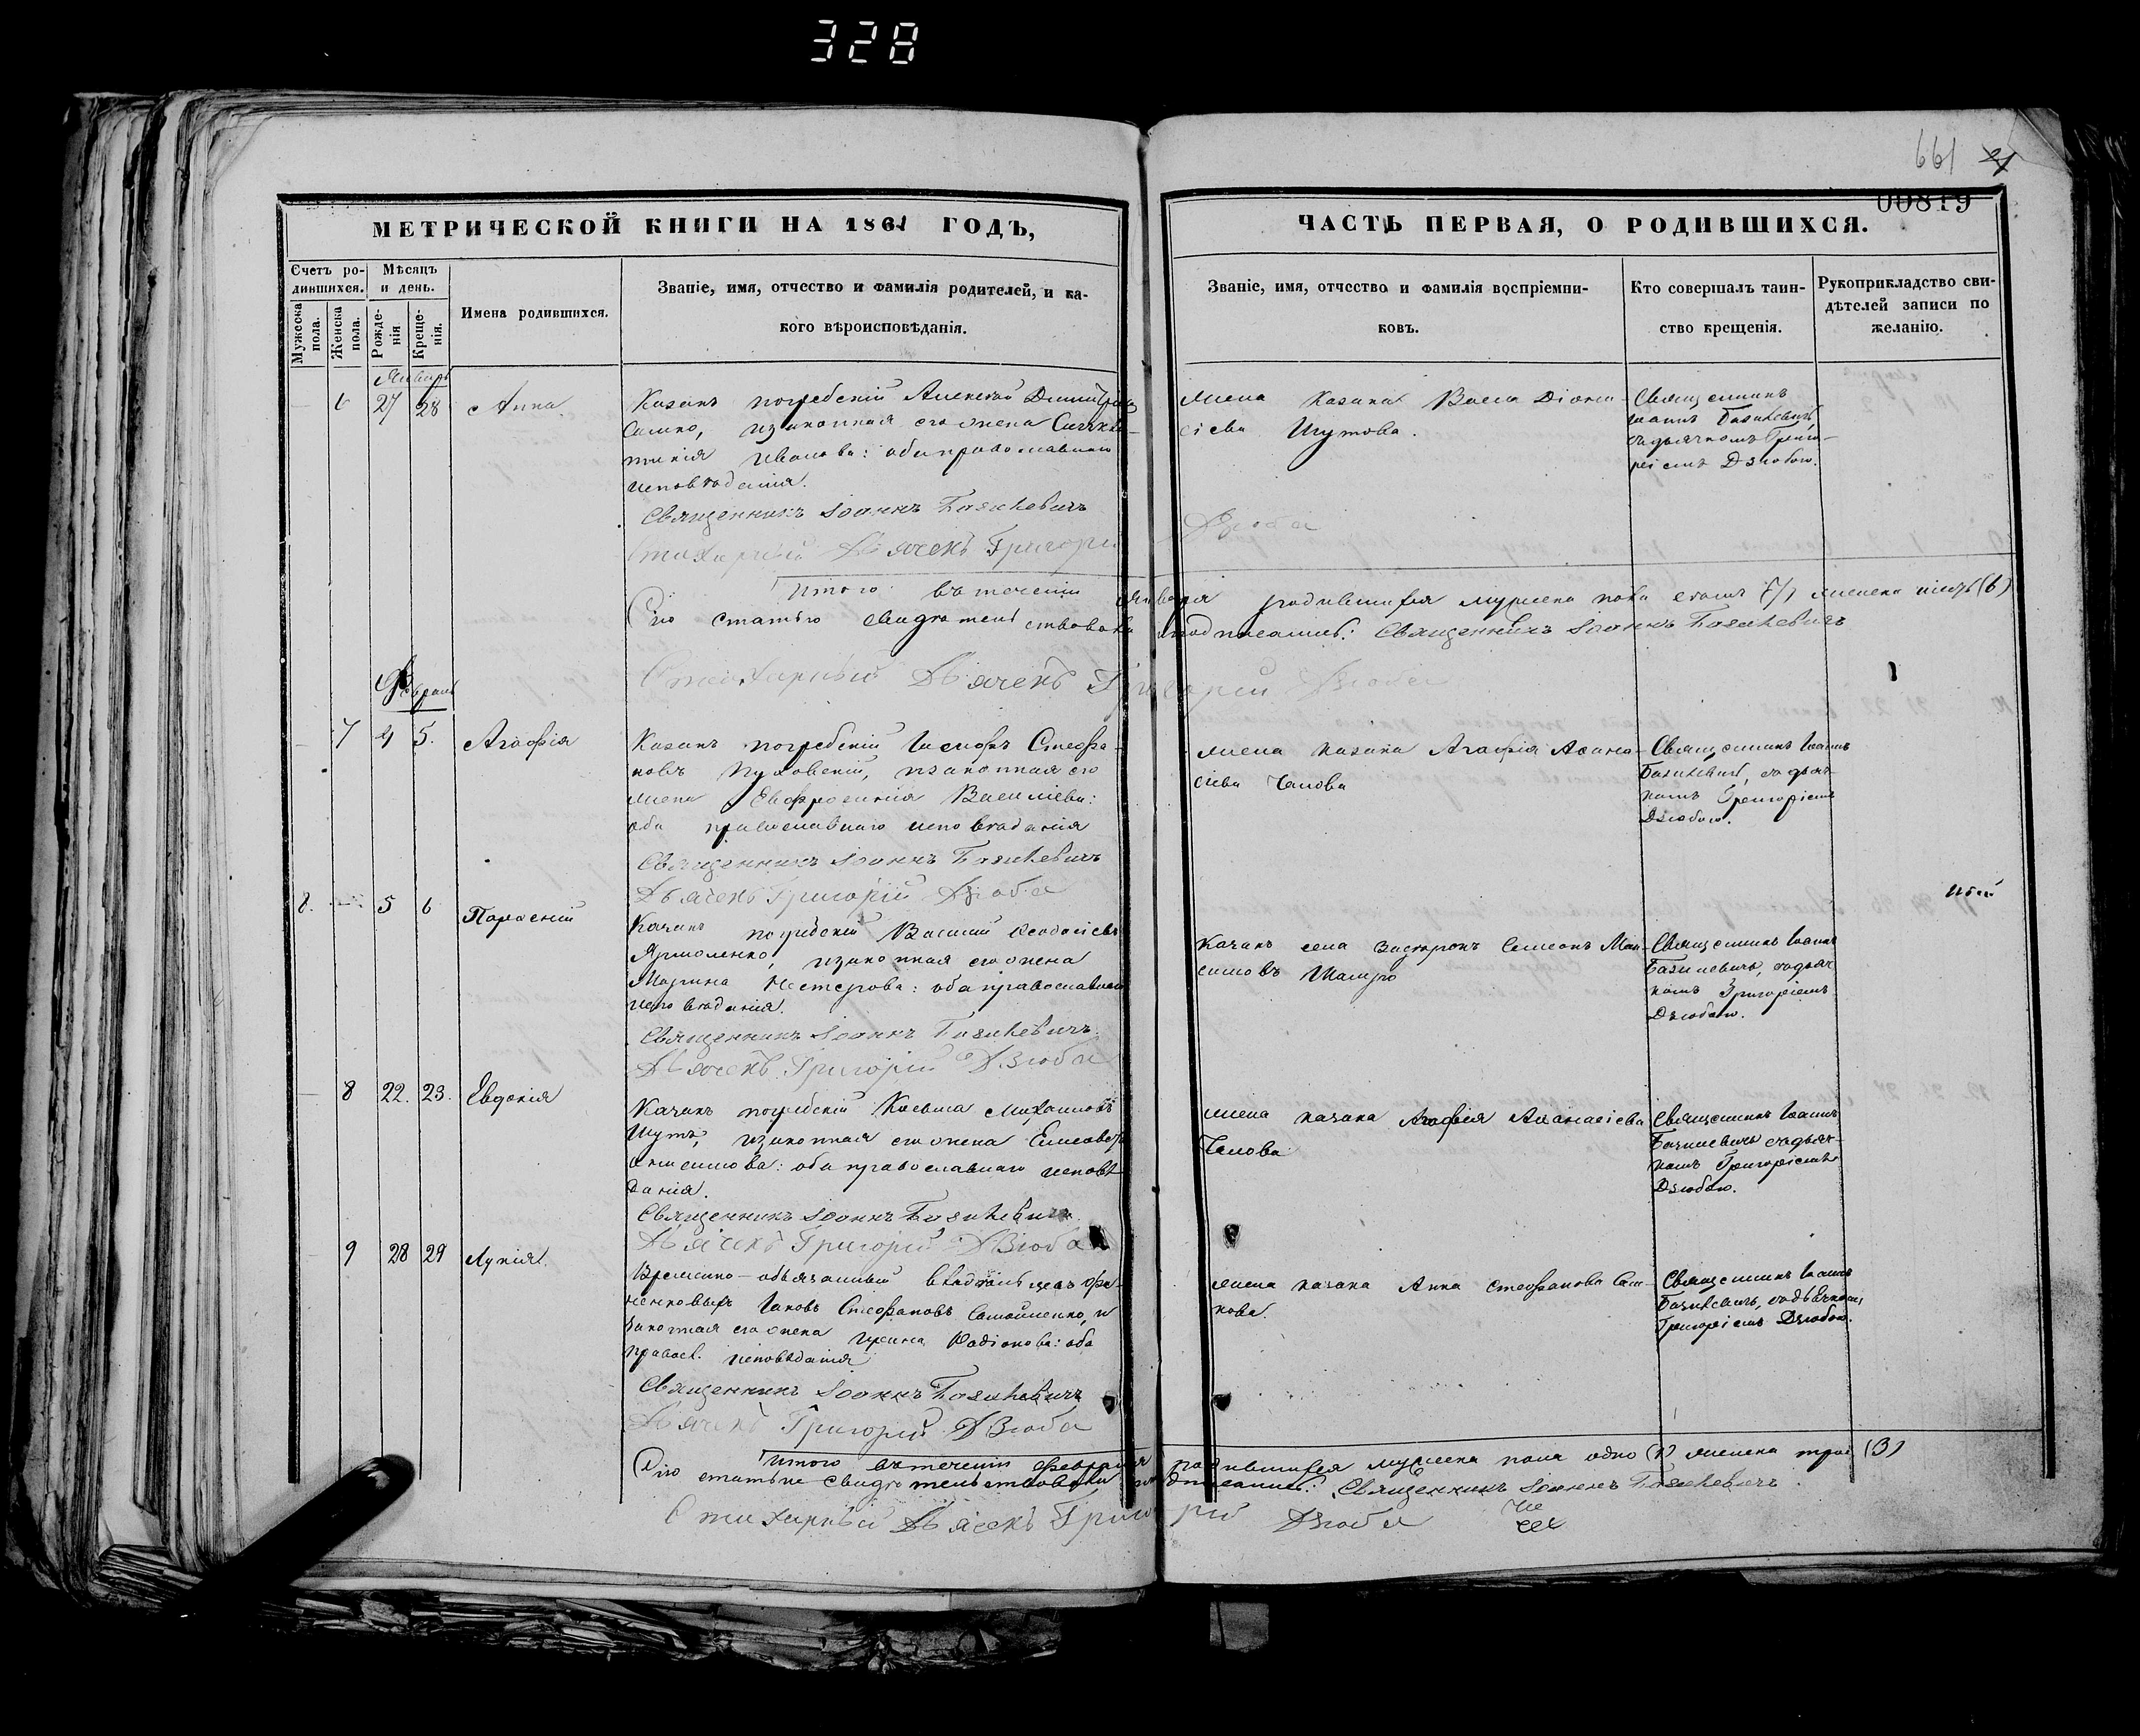 328
661 21
00819
МЕТРИЧЕСКОЙ КНИГИ НА 1861 ГОДЪ,
Счетъ ро-
дившихся.
Мужеска пола.
Женска пола.
Мѣсяцъ
и день.
Рожде-
нія
Креще-
нія.
Имена родившихся.
Званіе, имя, отчество и фамилія родителей, и ка-
кого вѣроисповѣданія.
ЧАСТЬ ПЕРВАЯ, О РОДИВШИХСЯ.
Званіе, имя, отчество и фамилія воспріемни-
ковъ.
Кто совершалъ таин-
ство крещенія.
Рукоприкладство сви-
дѣтелей записи по
желанію.
Январь
6 27 28 Анна.
Казакъ погребскій Алексѣй Димитріевъ
изаконная его жена
Иванова: оба православнаго
исповѣданія.
Священникъ Іоаннъ Базилевичъ
Стихарный Дьячекъ Григорій Дзюба
жена казака Васса Діони-
сіева Шутова.
Священникъ
Іоаннъ Базилевичъ,
съ дьячкомъ Григо-
ріемъ Дзюбою.
Итого въ теченіи января родившихся мужеска пола семь (7) женска шесть (6)
Сію статью свидѣтельствовали и подписались: Священникъ Іоаннъ Базилевичъ
Стихарный Дьячекъ Григорій Дзюба
Февраль
7 4 5. Агафія
Казакъ погребскій Іосифъ Стефа-
новъ Пуховскій, изаконная его
жена Евфросинія Василіева:
оба православнаго исповѣданія
Священникъ Іоаннъ Базилевичъ
Дьячекъ Григорій Дзюба
жена казака Агафія Афана-
сіева Чалова
Священникъ Іоаннъ
Базилевичъ, съ дьяч-
комъ Григоріемъ
Дзюбою.
8. 5 6 Парфеній
Казакъ погребскій Василій Феодосіевъ
Ярмоленко, изаконная его жена
Марина Нестерова: оба православнаго
исповѣданія.
Священникъ Іоаннъ Базилевичъ.
Дьячекъ Григорій Дзюба
Казакъ села Симеонъ Мак-
симовъ
Священникъ Іоаннъ
Базилевичъ, съ дьяч-
комъ Григоріемъ
Дзюбою.
8 22. 23. Евдокія
Казакъ погребскій Косьма Михаиловъ
Шутъ, изаконная его жена Елисавета
Анисимова: оба православнаго исповѣ
данія.
Священникъ Іоаннъ Базилевичъ.
Дьячекъ Григорій Дзюба
жена казака Агафія Афанасіева
Чалова
Священникъ Іоаннъ
Базилевичъ съ дьяч-
комъ Григоріемъ
Дзюбою.
9 28 29 Лукія.
Временно-обязанный владѣльцевъ
Іаковъ Стефановъ Самойленко, и
законная его жена Ирина Родіонова: оба
правосл. исповѣданія
Священникъ Іоаннъ Базилевичъ
Дьячекъ Григорій Дзюба
жена казака Анна Стефанова
кова.
Священникъ Іоаннъ
Базилевичъ, съ дьячкомъ
Григоріемъ Дзюбою.
Итого въ теченіи февраля родившихся мужеска пола одно (1) женска три (3)
Сію статью свидѣтельствовали и подписались: Священникъ Іоаннъ Базилевичъ.
Стихарный Дьячекъ Григорій Дзюба